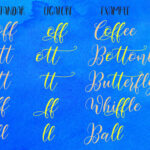 STANDAR LIGATURE EXAMPLE
off off Coffee
ott ott Bottom
tt tt Butterfly
ff ff Whiffle
ll ll Ball